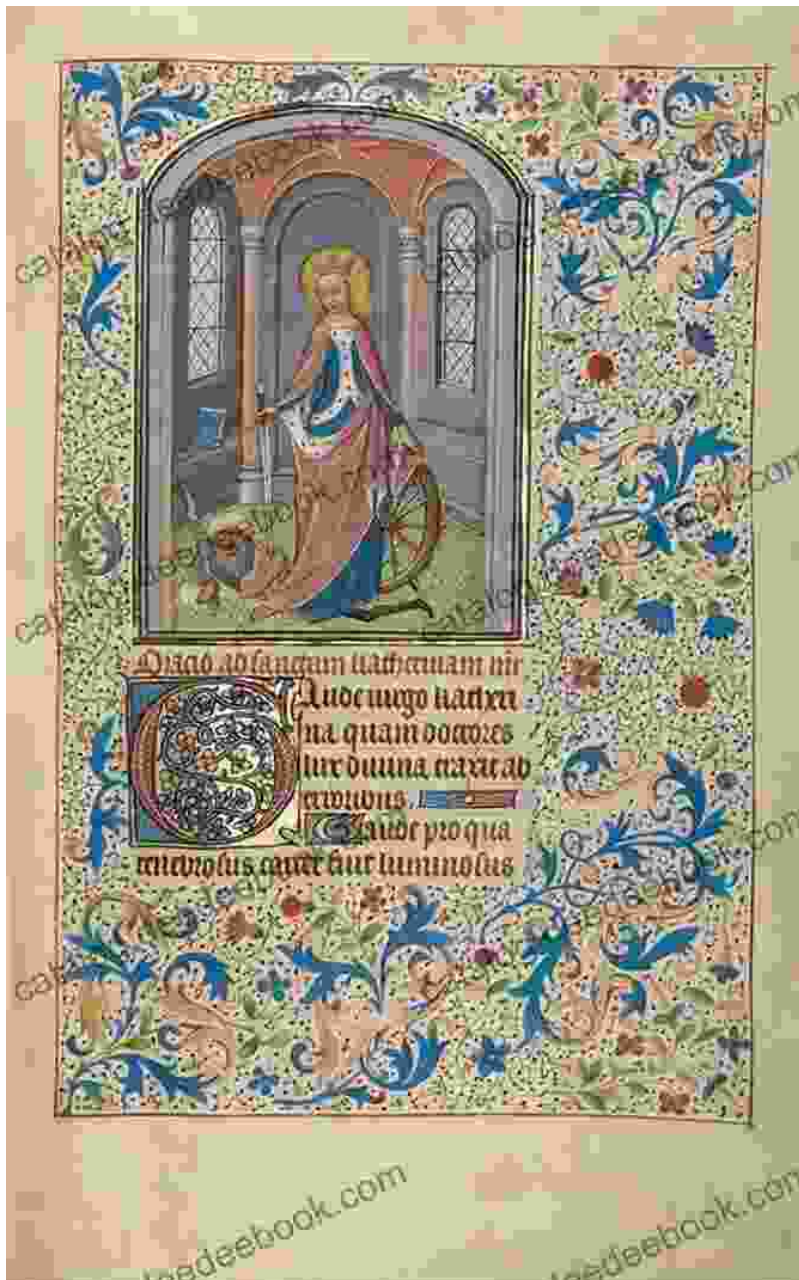 Oracio ad sanctam katherinam vir
Gaude virgo katheri
na quam doctores
lux divina traxit ab
erroribus
Gaude pro qua
tenebrosus carcer fuit luminosus
catalog.deedeebook.com